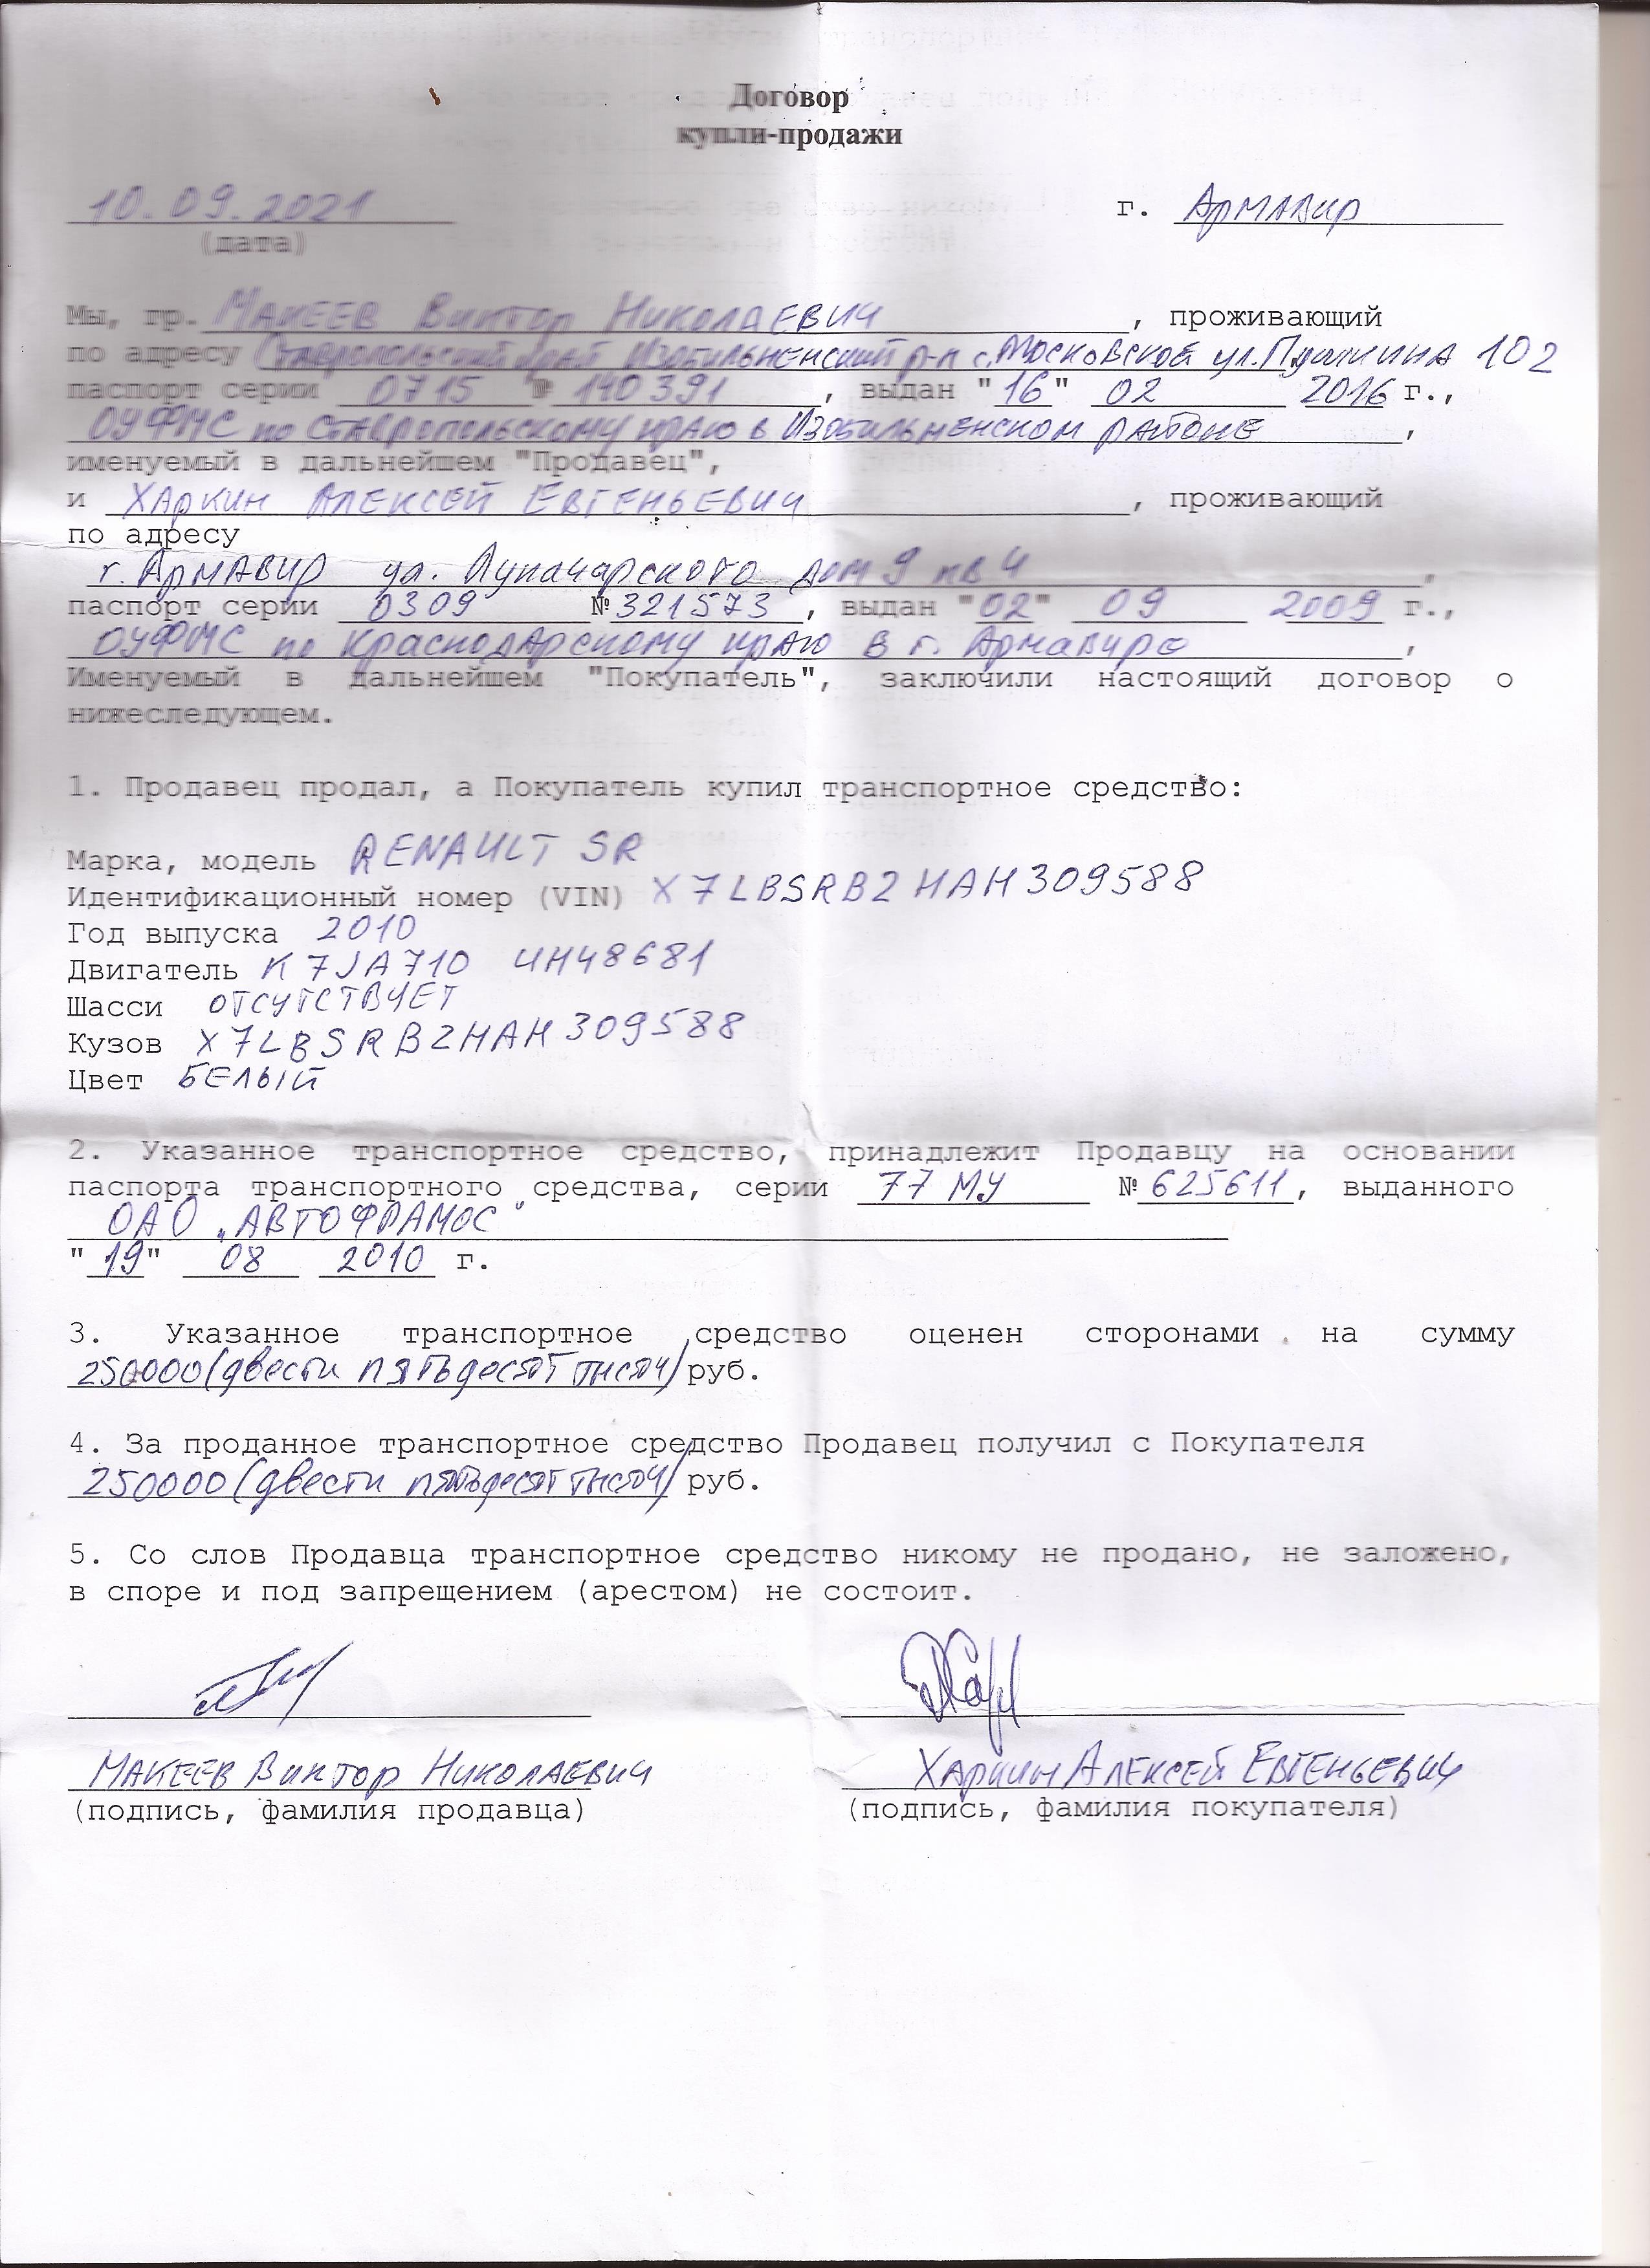 Договор
купли-продажи
10.09.2021 г. Армавир
(дата)
Мы, гр. Макеев Виктор Николаевич, проживающий
по адресу Ставропольский край Изобильненский р-н с. Московское ул. Пушкина 102
паспорт серии 0715 № 140391, выдан "16" 02 2016 г.,
ОУФМС по Ставропольскому краю в Изобильненском районе,
именуемый в дальнейшем "Продавец",
и Харкин Алексей Евгеньевич, проживающий
по адресу
г. Армавир ул. Луначарского дом 9 кв 4,
паспорт серии 0309 № 321573, выдан "02" 09 2009 г.,
ОУФМС по Краснодарскому краю в г. Армавире,
Именуемый в дальнейшем "Покупатель", заключили настоящий договор о
нижеследующем.
1. Продавец продал, а Покупатель купил транспортное средство:
Марка, модель RENAULT SR
Идентификационный номер (VIN) X7LBSRB2HAH309588
Год выпуска 2010
Двигатель K7JA710 UH48681
Шасси отсутствует
Кузов X7LBSRB2HAH309588
Цвет БЕЛЫЙ
2. Указанное транспортное средство, принадлежит Продавцу на основании
паспорта транспортного средства, серии 77 МУ № 625611, выданного
ОАО "АВТОФРАМОС"
"19" 08 2010 г.
3. Указанное транспортное средство оценен сторонами на сумму
250000 (двести пятьдесят тысяч) руб.
4. За проданное транспортное средство Продавец получил с Покупателя
250000 (двести пятьдесят тысяч) руб.
5. Со слов Продавца транспортное средство никому не продано, не заложено,
в споре и под запрещением (арестом) не состоит.
Макеев Виктор Николаевич Харкин Алексей Евгеньевич
(подпись, фамилия продавца) (подпись, фамилия покупателя)